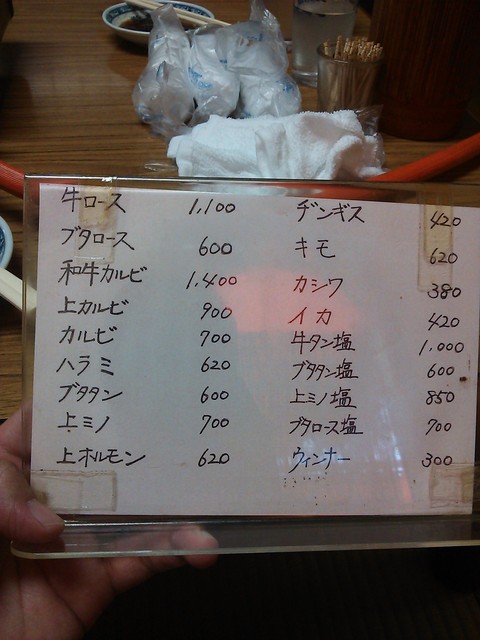 牛ロース 1,100
ブタロース 600
和牛カルビ 1,400
上カルビ 900
カルビ 700
ハラミ 620
ブタタン 600
上ミノ 700
上ホルモン 620
ヂンギス 420
キモ 620
カシワ 380
イカ 420
牛タン塩 1,000
ブタタン塩 600
上ミノ塩 850
ブタロース塩 700
ウィンナー 300